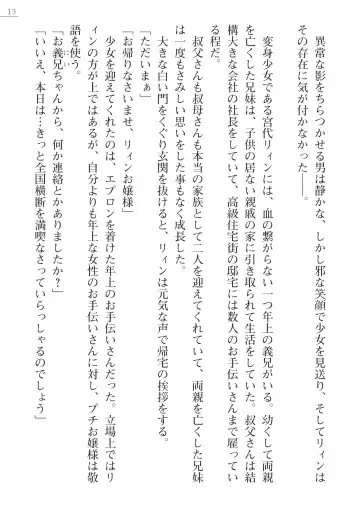 13
異常な影をちらつかせる男は静かな、しかし邪な笑顔で少女を見送り、そしてリィンは
その存在に気が付かなかった――。
変身少女である宮代リィンには、血の繋がらない一つ年上の義兄がいる。幼くして両親
を亡くした兄妹は、子供の居ない親戚の家に引き取られて生活をしていた。叔父さんは結
構大きな会社の社長をしていて、高級住宅街の邸宅には数人のお手伝いさんまで雇ってい
る程だ。
叔父さんも叔母さんも本当の家族として二人を迎えてくれていて、両親を亡くした兄妹
は一度もさみしい思いをした事もなく成長した。
大きな白い門をくぐり玄関を抜けると、リィンは元気な声で帰宅の挨拶をする。
「ただいまぁ」
「お帰りなさいませ、リィンお嬢様」
少女を迎えてくれたのは、エプロンを着けた年上のお手伝いさんだった。立場上ではリ
ィンの方が上ではあるが、自分よりも年上な女性のお手伝いさんに対し、プチお嬢様は敬
語を使う。
「お義兄ちゃんから、何か連絡とかありましたか？」
「いいえ、本日は…きっと全国横断を満喫なさっていらっしゃるのでしょう」